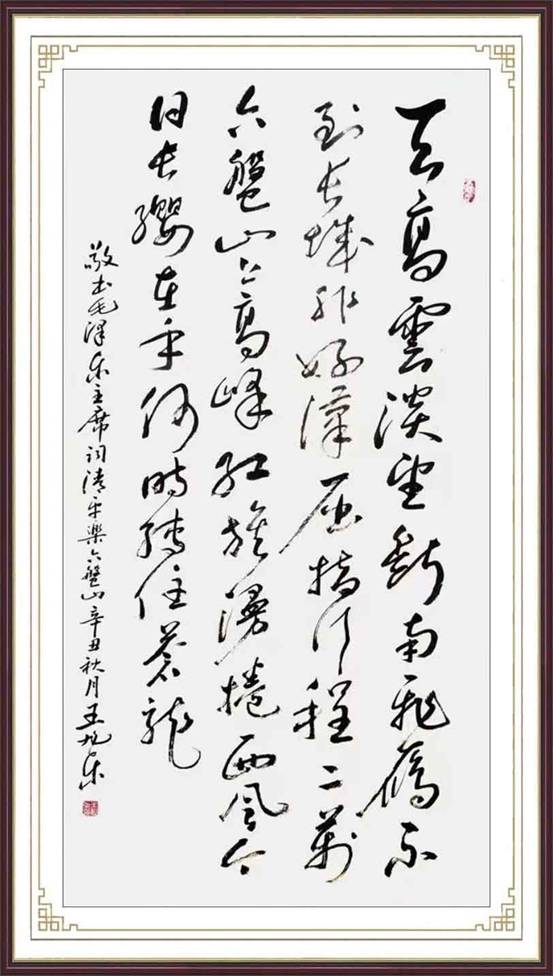 天高雲淡望斷南飛雁不
到長城非好漢屈指行程二萬
六盤山上高峰紅旗漫捲西風今
日長纓在手何時縛住蒼龍
敬書毛澤東主席詞清平樂六盤山辛丑秋月王